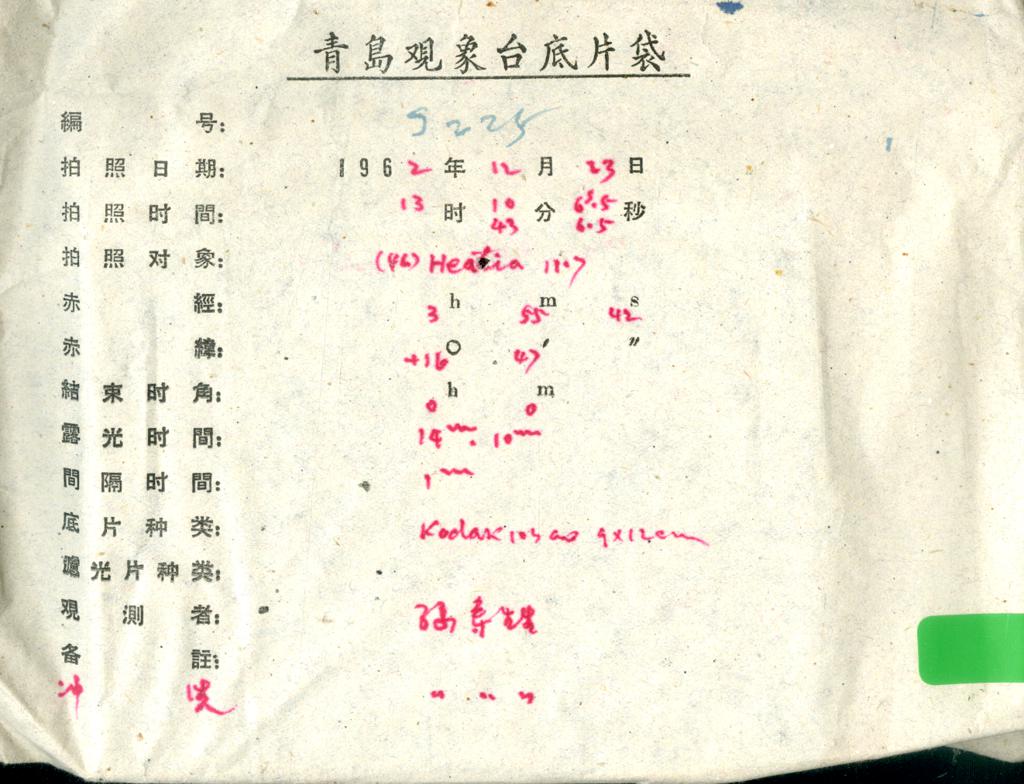 青島观象台底片袋
編号: 9225
拍照日期: 1962年12月23日
拍照时間: 13时10分 秒
43 6.5
拍照对象: (46) Hestia 11.7
赤經: 3h 55m 42s
赤緯: +16° 47′ ″
結束时角: 0h 0m
露光时間: 14m. 10m
間隔时間: 1m
底片种类: Kodak 103 ao 9x12cm
濾光片种类:
观測者: 孙寿
备註:
冲洗 〃 〃 〃